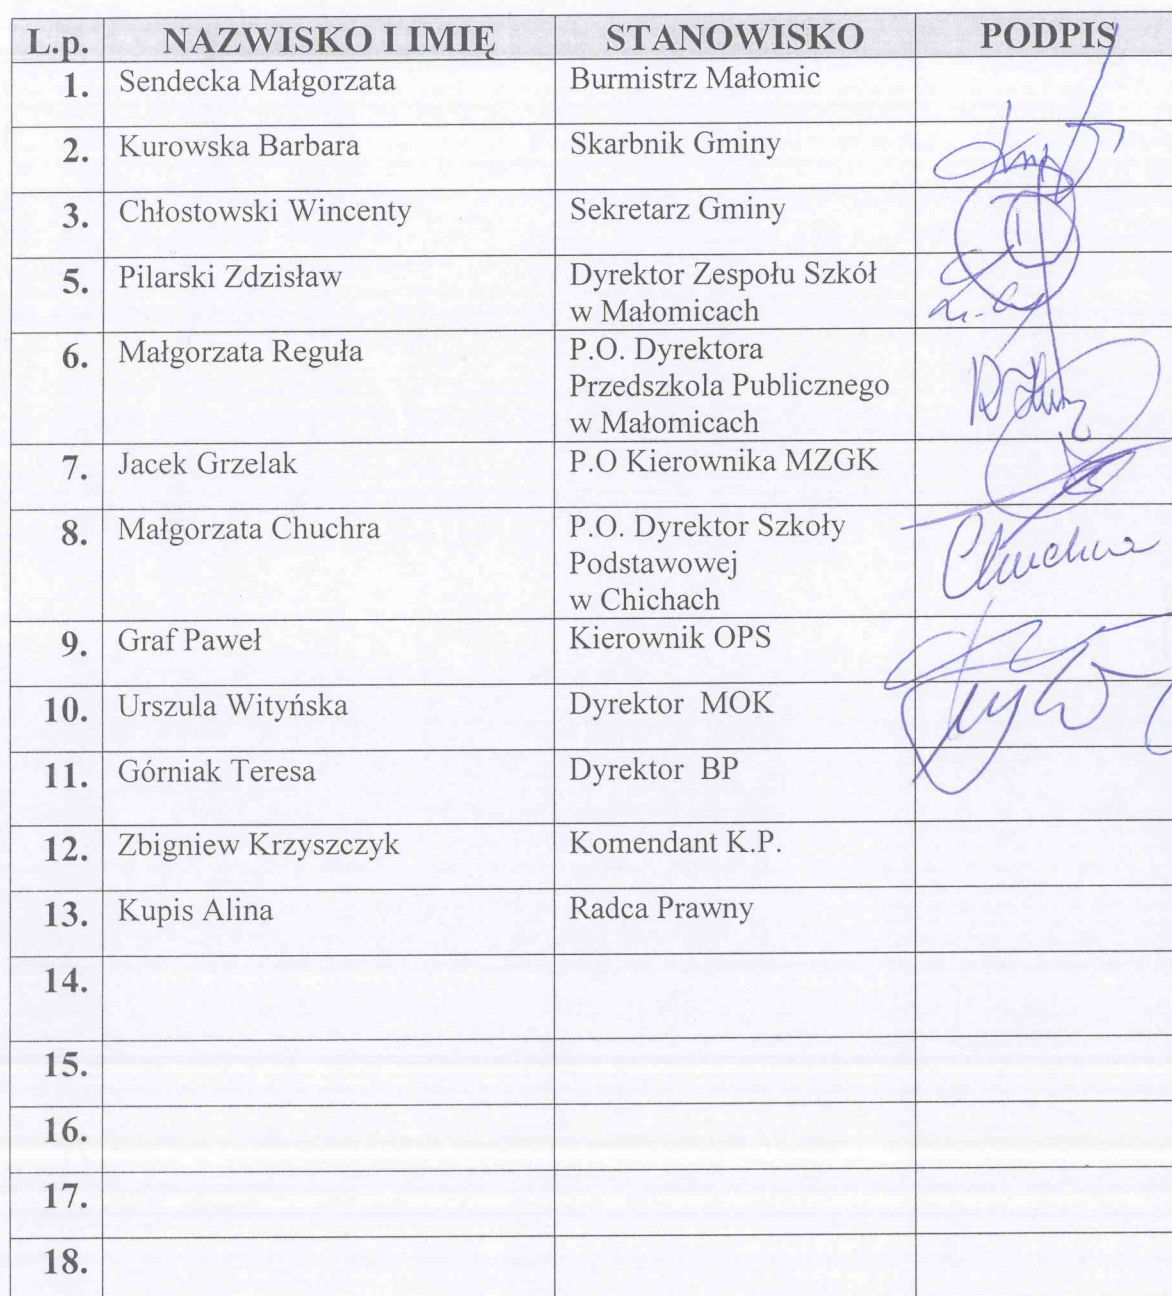 L.p. NAZWISKO I IMIĘ STANOWISKO PODPIS
1. Sendecka Małgorzata Burmistrz Małomic
2. Kurowska Barbara Skarbnik Gminy
3. Chłostowski Wincenty Sekretarz Gminy
5. Pilarski Zdzisław Dyrektor Zespołu Szkół
w Małomicach
6. Małgorzata Reguła P.O. Dyrektora
Przedszkola Publicznego
w Małomicach
7. Jacek Grzelak P.O Kierownika MZGK
8. Małgorzata Chuchra P.O. Dyrektor Szkoły
Podstawowej
w Chichach
Chuchra
9. Graf Paweł Kierownik OPS
10. Urszula Wityńska Dyrektor MOK
11. Górniak Teresa Dyrektor BP
12. Zbigniew Krzyszczyk Komendant K.P.
13. Kupis Alina Radca Prawny
14.
15.
16.
17.
18.